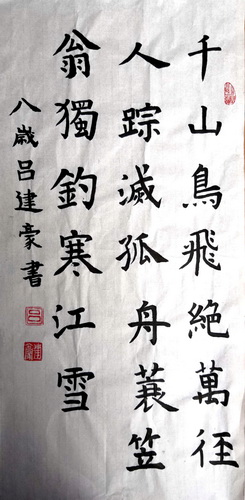 千山鳥飛絶萬徑
人踪滅孤舟蓑笠
翁獨釣寒江雪
八歲吕建豪書